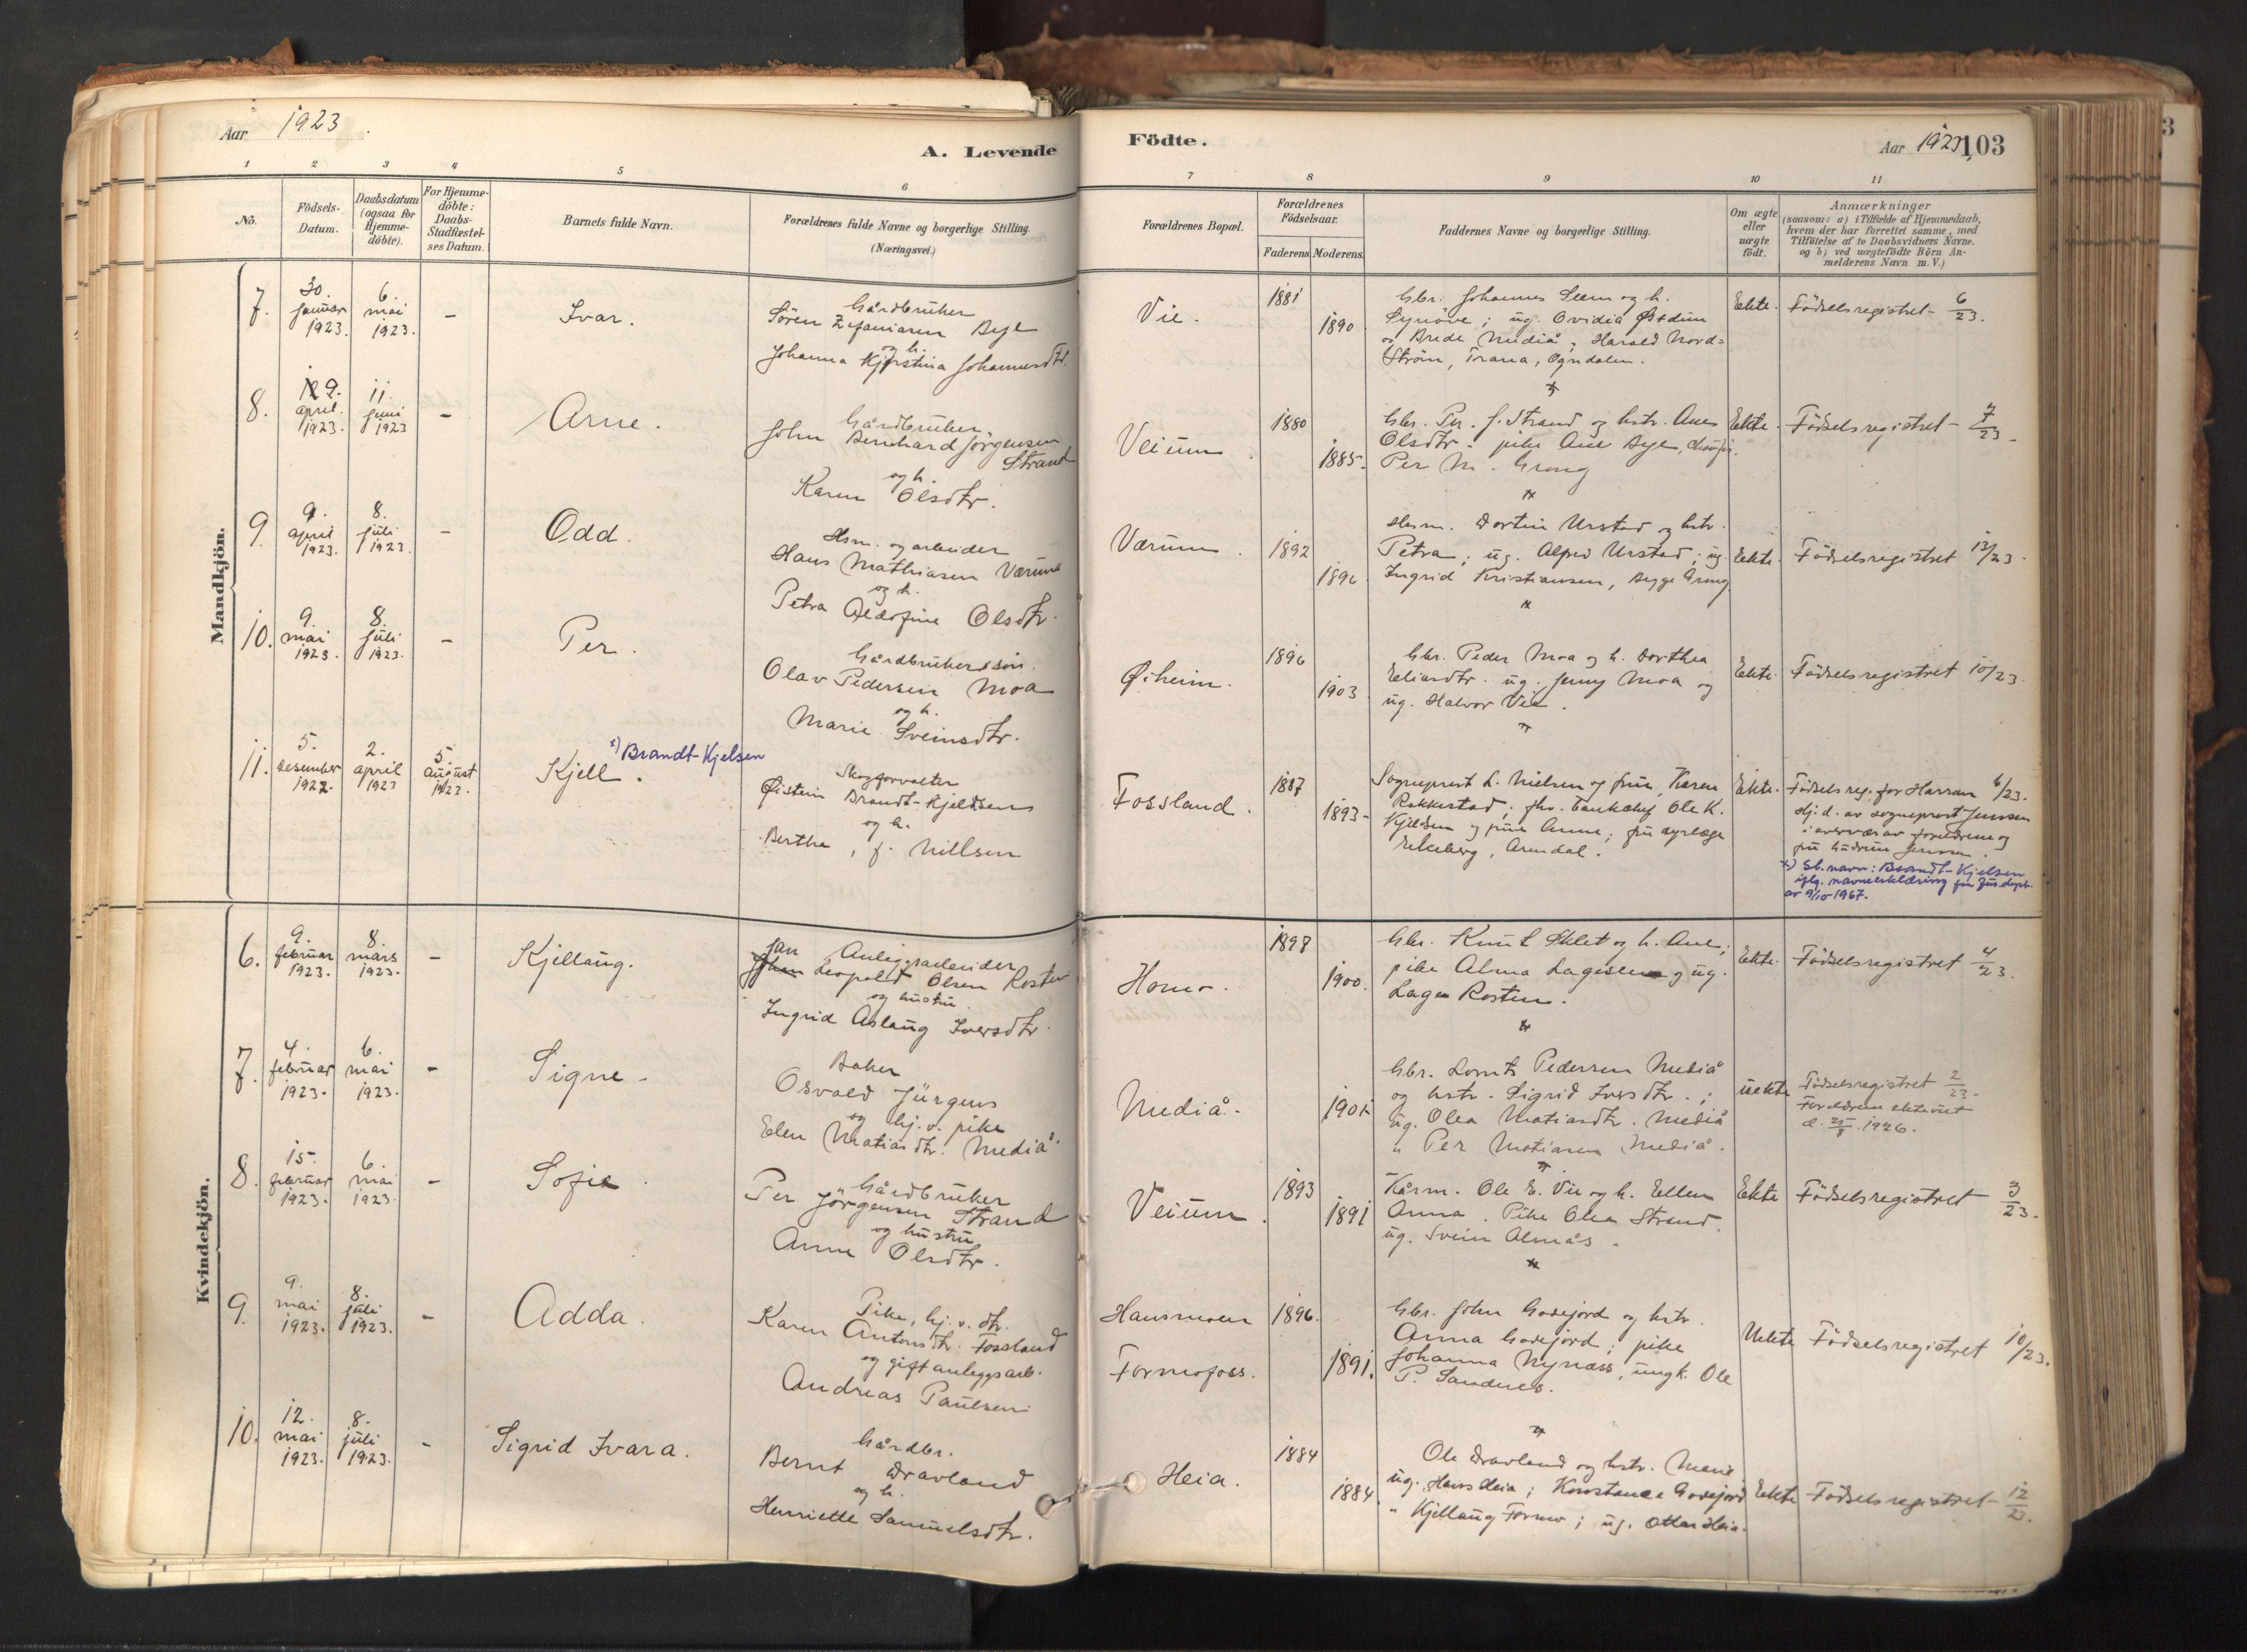 Aar 1923.
A. Levende
Födte.
Aar 1923.
103
3
1 2 3 4 5 6
7 8 9 10 11
No.
Födsels-
Datum.
Daabsdatum
(ogsaa for
Hjemme-
döbte).
For Hjemme-
döbte:
Daabs-
Stadfæstel-
ses Datum.
Barnets fulde Navn.
Forældrenes fulde Navne og borgerlige Stilling.
(Næringsvei.)
Forældrenes Bopæl.
Forældrenes
Födselsaar.
Faderens Moderens
Faddernes Navne og borgerlige Stilling.
Om ægte
eller
uægte
födt.
Anmærkninger
(saasom: a) i Tilfælde af Hjemmedaab,
hvem der har forrettet samme, med
Tilföielse af to Daabsvidners Navne.
og b) ved uægtefödte Börn An-
melderens Navn m. V.)
Mandkjön.
7.
30.
januar
1923.
6.
mai
1923.
-
Ivar.
Gårdbruker
Sören Zefaniasen Bye
og h.
Johanna Kjerstina Johannesdtr.
Vie.
1881
1890
Gbr. Johannes Seem og h.
Synöve; ug. Ovidia Östdun
og Brede Mediå; Harald Nord-
Ström, Trana, Ogndalen.
Ekte.
Födselsregistret 6/23.
8.
9.
april.
1923.
11.
juni
1923
-
Arne.
Gårdbruker,
John Bernhard Jörgensen
Strand
og h.
Karen Olsdtr.
Veium.
1880
1885.
Gbr. Per J. Strand og hstr. Anne
Olsdtr. pike Ane Bye,
Per M. Grong
Ekte.
Födselsregistret - 7/23 -
9.
9.
april
1923.
8.
juli
1923.
-
Odd.
Hsm. og arbeider
Hans Mathiasen Værum
og h.
Petra Aldofine Olsdtr.
Værum.
1892
1896
Hsm. Dortin Urstad og hstr.
Petra; ug. Alfred Urstad; ug.
Ingrid Kristiansen, Bygg Grong
Ekte.
Födselsregistret 13/23.
10.
9.
mai
1923.
8.
juli
1923.
-
Per.
Gårdbrukersön.
Olav Pedersen Moa
og h.
Marie Sveinsdtr.
Öiheim.
1896
1903
Gbr. Peder Moa og h. Dorthea
Eliasdtr. ug. Jenny Moa og
ug. Halvor Vie.
Ekte.
Födselsregistret 10/23.
11.
5.
desember
1922.
2.
april
1923
5.
august
1923.
Kjell.
x) Brandt-Kjelsen
Skogforvalter
Öistein Brandt-Kjeldsen
og h.
Bertha, f. Nillsen
Fossland.
1887
1893-
Sogneprest L. Nielsen og frue, Karen
Rakkestad; fhv. bankchef Ole K.
Kjeldsen og frue Anne; fru dyrlæge
Ekeberg, Arendal.
Ekte.
Födselsreg. for Harran 6/23.
Hj. d. av sogneprest Jenssen
i overvær av foreldrene og
fru Gudrun Jenssen.
x) Sl. navn: Brandt-Kjelsen
iflg. navneerklæring fra Jus.dept.
av 9/10-1967.
Kvindekjön.
6.
9.
februar
1923.
8.
mars
1923.
-
Kjellaug.
Anleggsarbeider
Jan Leopold Olsen Rosten
og hustru
Ingrid Aslaug Iversdtr.
Homo.
1898
1900.
Gbr. Knut Sklet og h. Ane;
pike Alma Lagesen og ug.
Lage Rosten.
Ekte.
Födselsregistret 4/23.
7.
4.
februar
1923.
6.
mai
1923.
-
Signe -
Baker
Osvald Jürgens
og hj. v. pike
Elen Matiasdtr. Mediå
Mediå.
1901
Gbr. Lornts Pedersen Mediå
og hstr. Sigrid Iversdtr.;
ug. Olea Matiasdtr. Mediå
" Per Matiasen Mediå.
uekte
Födselsregistret 2/23.
Foreldrene ekteviet
d. 25/8.1926.
8.
15.
februar
1923.
6.
mai
1923.
-
Sofie.
Gårdbruker
Per Jörgensen Strand
og hustru
Anne Olsdtr.
Veium.
1893
1891
Kårm. Ole E. Vie og h. Ellen
Anna. Pike Olea Strand.
ug. Svein Almås.
Ekte
Födselsregistret 3/23.
9.
9.
mai
1923.
8.
juli
1923.
-
Adda.
Pike, hj. v. dtr.
Karen Antonsdtr. Fossland
og gift anleggsarb.
Andreas Paulsen
Hansmoen
Formofoss.
1896.
1891.
Gbr. John Godejord og hstr.
Anna Godejord; pike
Johanna Nynæss, ungk. Ole
P. Sandnes.
Uekte
Födselsregistret 10/23.
10.
12.
mai
1923.
8.
juli
1923.
-
Sigrid Ivara.
Gårdbr.
Bernt Dravland
og h.
Henriette Samuelsdtr.
Heia.
1884
1884
Ole Dravland og hstr. Marie
ug. Hans Heia; Konstance Godejord
" Kjellaug Formo; ug. Ottar Heia.
Ekte
Födselsregistret - 12/23.